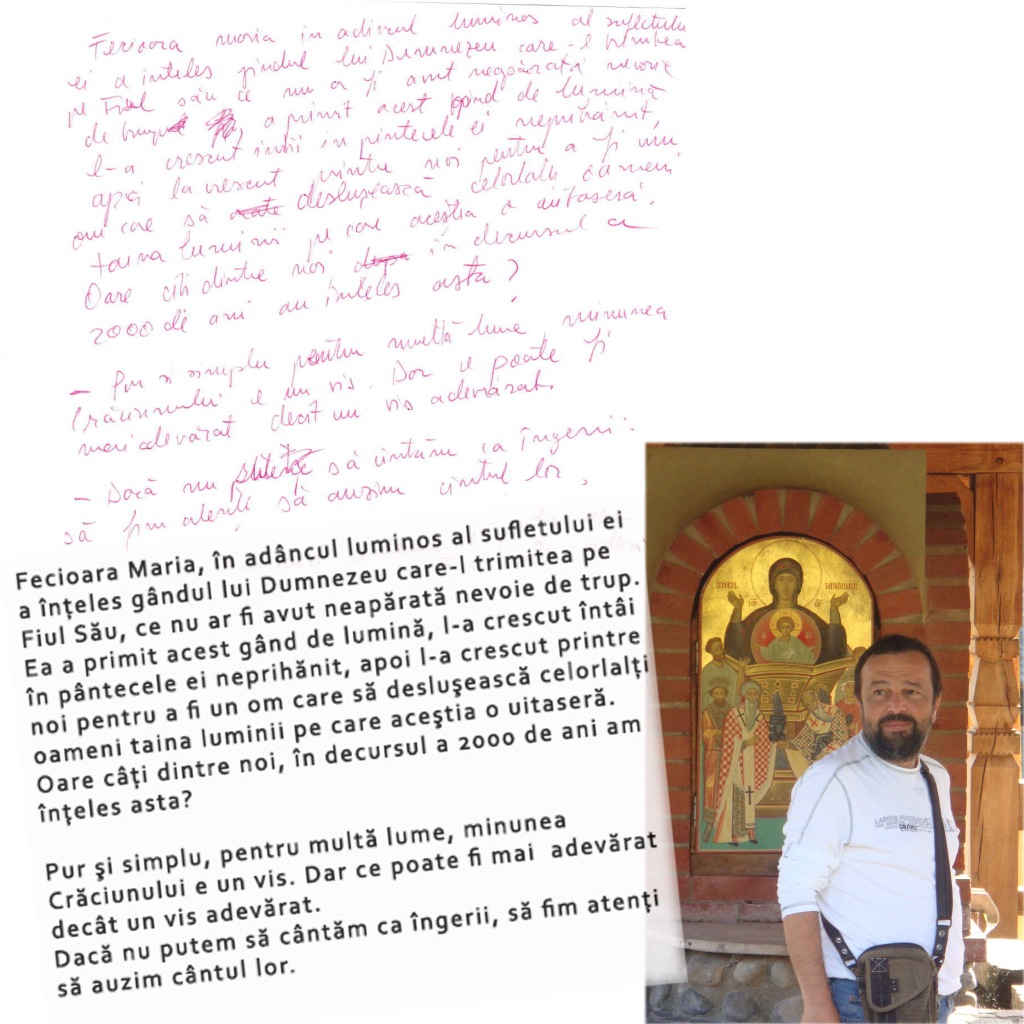 Fecioara Maria în adîncul luminos al sufletului
ei a înteles gîndul lui Dumnezeu care-l trimitea
pe Fiul său ce nu ar fi avut neapărată nevoie
de trup, a primit acest gînd de lumină
l-a crescut întîi in pîntecele ei neprihănit,
apoi la crescut printre noi pentru a fi un
om care să deslușească celorlalti oameni
taina luminii pe care aceștia o uitaseră.
Oare citi dintre noi in decursul a
2000 de ani au înteles asta?
- Pur si simplu pentru multă lume, minunea
Crăciunului e un vis. Dar ce poate fi
mai adevărat decît un vis adevărat.
- Dacă nu putem să cîntăm ca îngerii:
să fim atenti să auzim cîntul lor.
Fecioara Maria, în adâncul luminos al sufletului ei
a înţeles gândul lui Dumnezeu care-l trimitea pe
Fiul Său, ce nu ar fi avut neapărată nevoie de trup.
Ea a primit acest gând de lumină, l-a crescut întâi
în pântecele ei neprihănit, apoi l-a crescut printre
noi pentru a fi un om care să desluşească celorlalţi
oameni taina luminii pe care aceştia o uitaseră.
Oare câţi dintre noi, în decursul a 2000 de ani am
înţeles asta?
Pur şi simplu, pentru multă lume, minunea
Crăciunului e un vis. Dar ce poate fi mai adevărat
decât un vis adevărat.
Dacă nu putem să cântăm ca îngerii, să fim atenţi
să auzim cântul lor.